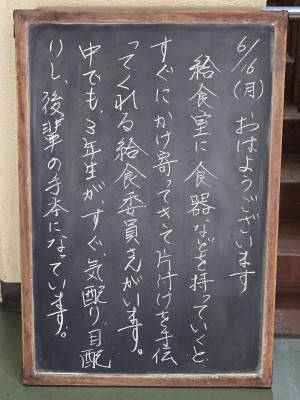 6/16(月) おはようございます
給食室に食器などを持っていくと、
すぐにかけ寄ってきて片付けを手伝
ってくれる給食委員さんがいます。
中でも、3年生が、すぐ、気配り、目配
りし、後輩の手本になっています。